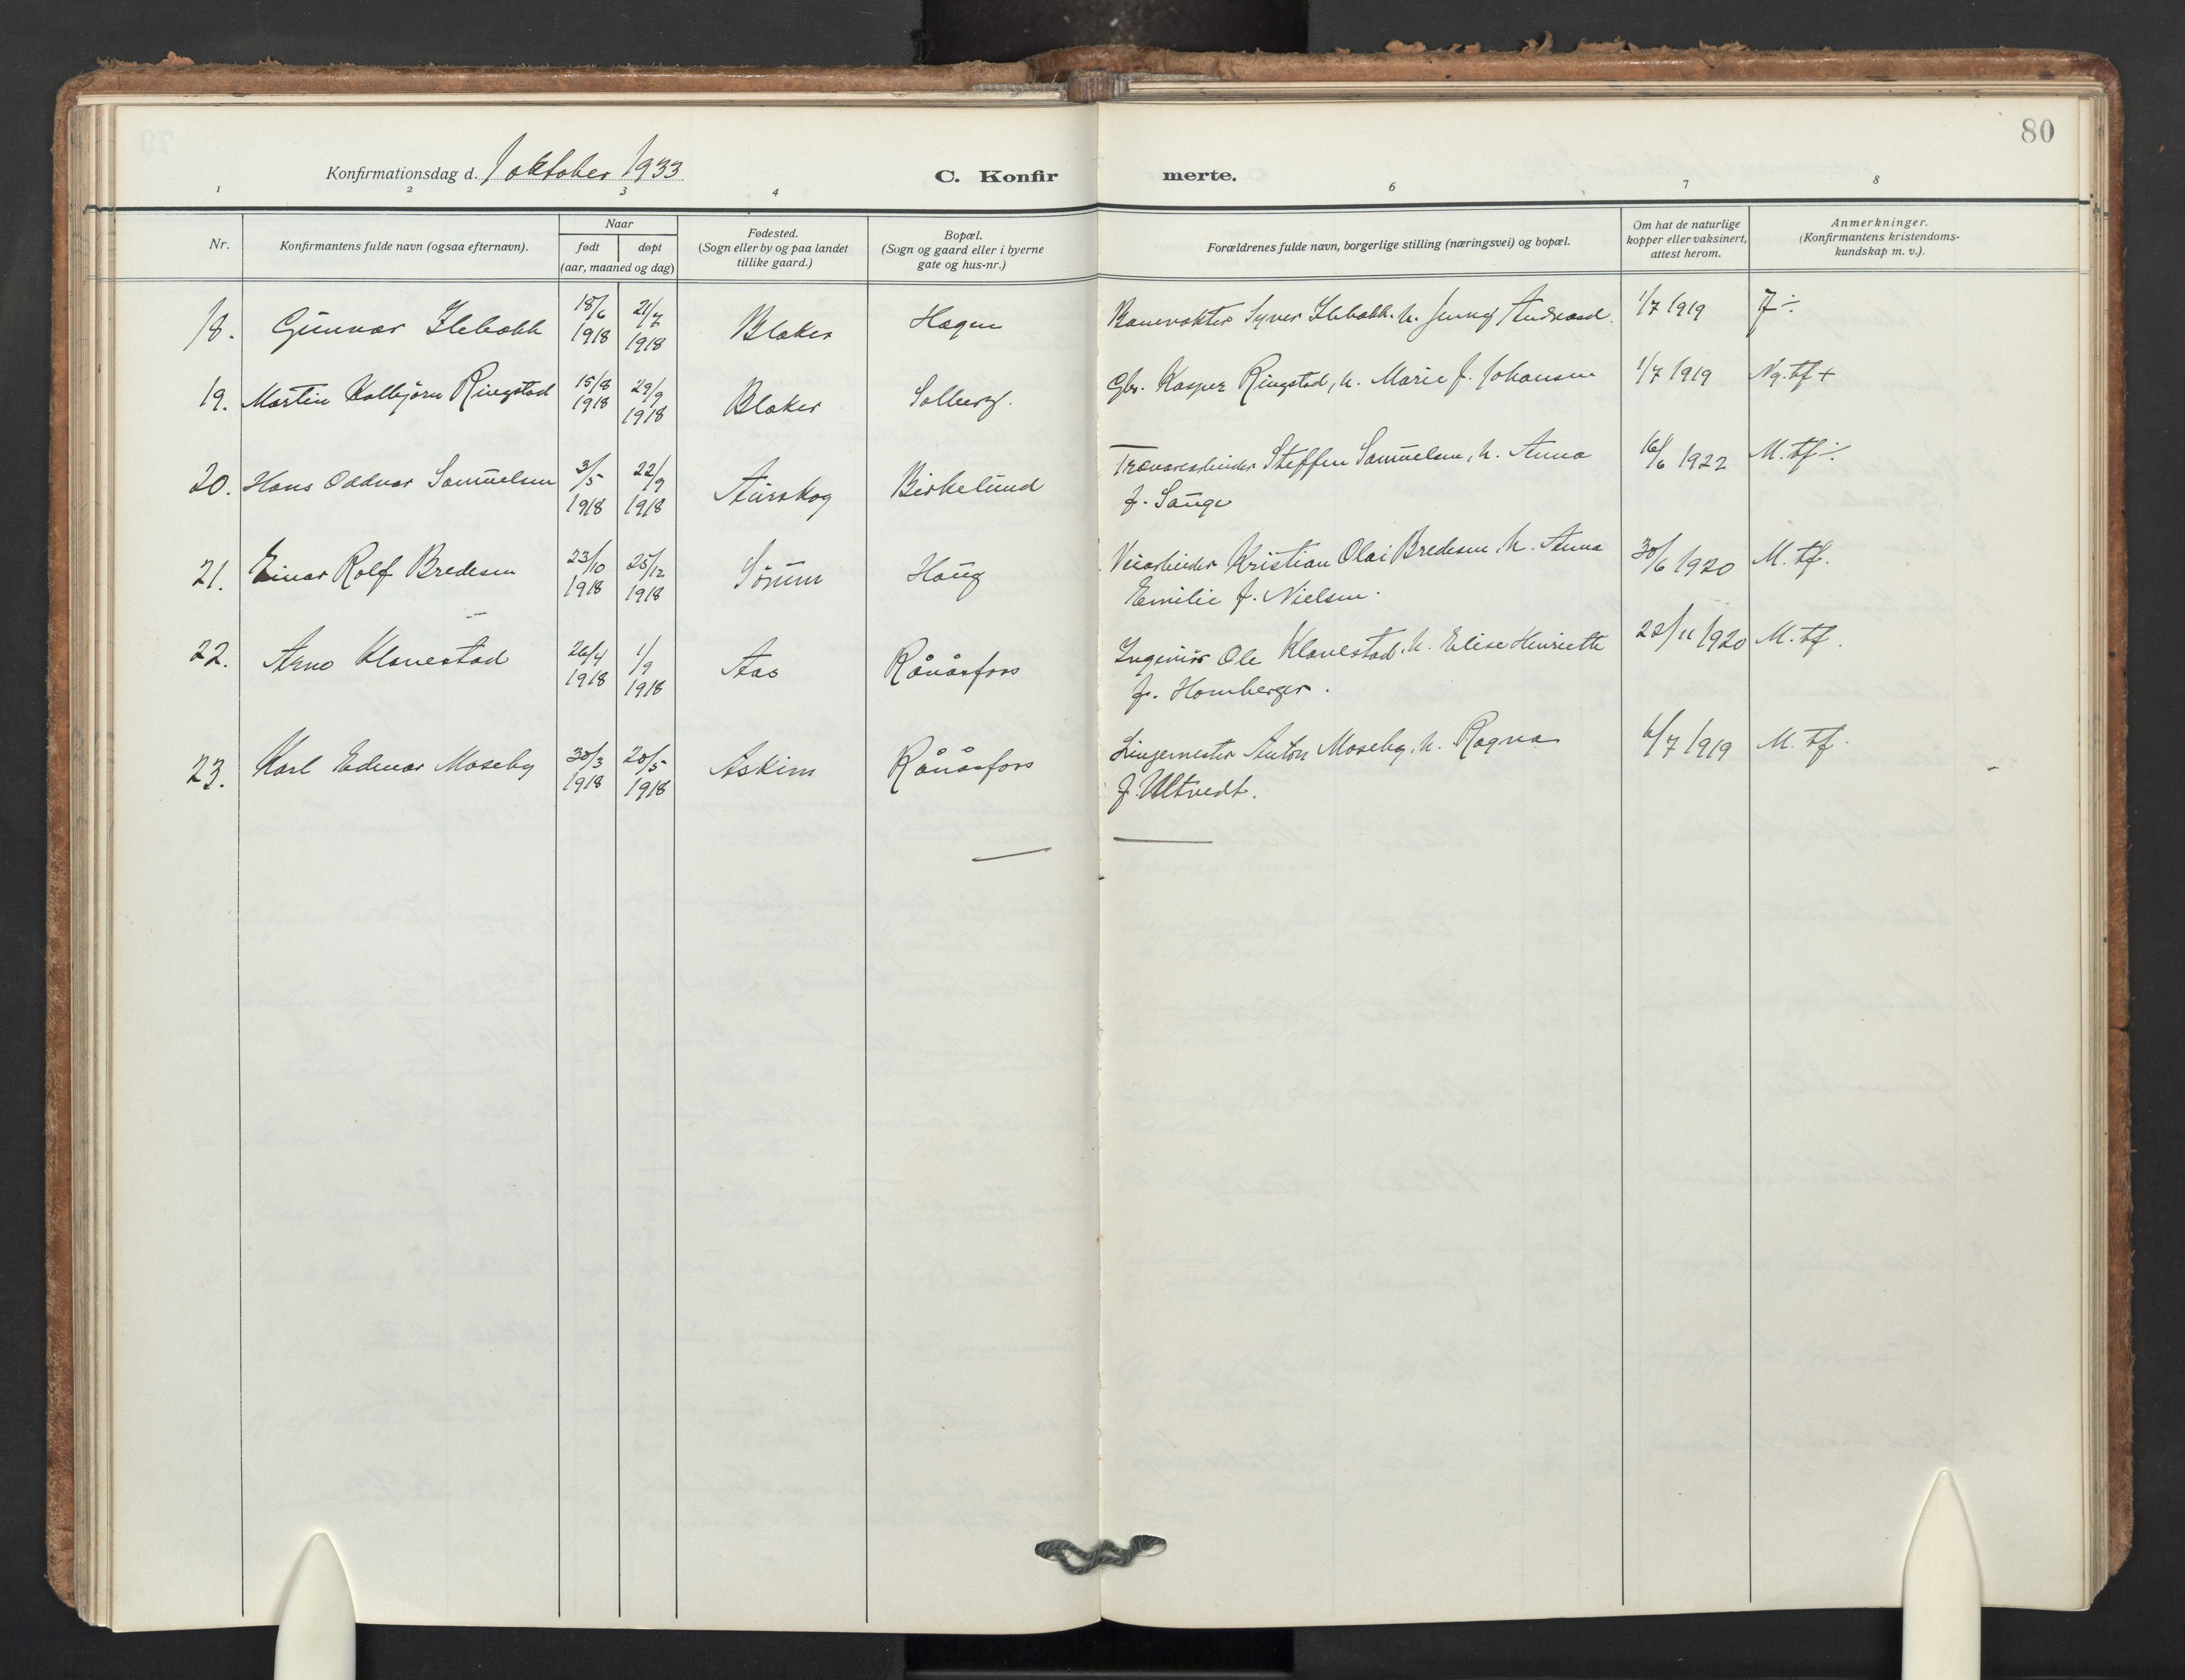 80
Konfirmationsdag d. 1 oktober 1933
C. Konfirmerte.
1 2 3 4 6 7 8
Nr.
Konfirmantens fulde navn (ogsaa efternavn).
Naar
født døpt
(aar, maaned og dag)
Fødested.
(Sogn eller by og paa landet
tillike gaard.)
Bopæl.
(Sogn og gaard eller i byerne
gate og hus-nr.)
Forældrenes fulde navn, borgerlige stilling (næringsvei) og bopæl.
Om hat de naturlige
kopper eller vaksinert,
attest herom.
Anmerkninger.
(Konfirmantens kristendoms-
kundskap m. v.).
18. Gunnar Ilebækk 18/6 1918 21/7 1918 Blaker Hagen Banevokter Syver Ilebækk. h. Jenny Andreasd. 1/7 1919 J ÷
19. Martin Kolbjørn Ringstad 15/8 1918 29/9 1918 Blaker Solberg. Gbr. Kasper Ringstad, h. Marie f. Johansen 1/7 1919 Ng. tf +
20. Hans Oddvar Samuelsen 3/5 1918 22/9 1918 Aurskog Birkelund Trævarearbeider Steffen Samuelsen, h. Anna
f. Sauge 16/6 1922 M. tf ÷
21. Einar Rolf Bredesen 23/10 1918 25/12 1918 Sørum Haug Veiarbeider Kristian Olai Bredesen, h. Anna
Emilie f. Nielsen. 30/6 1920 M. tf.
22. Arno Klanestad 26/4 1918 1/9 1918 Aas Rånåsfoss Ingeniør Ole Klanestad. h. Elise Henriette
f. Homberger. 22/11 1920 M. tf.
23. Karl Edmar Moseby 30/3 1918 20/5 1918 Askim Rånåsfoss Linjemester Anton Moseby, h. Ragna
f. Ultvedt. 6/7 1919 M. tf.